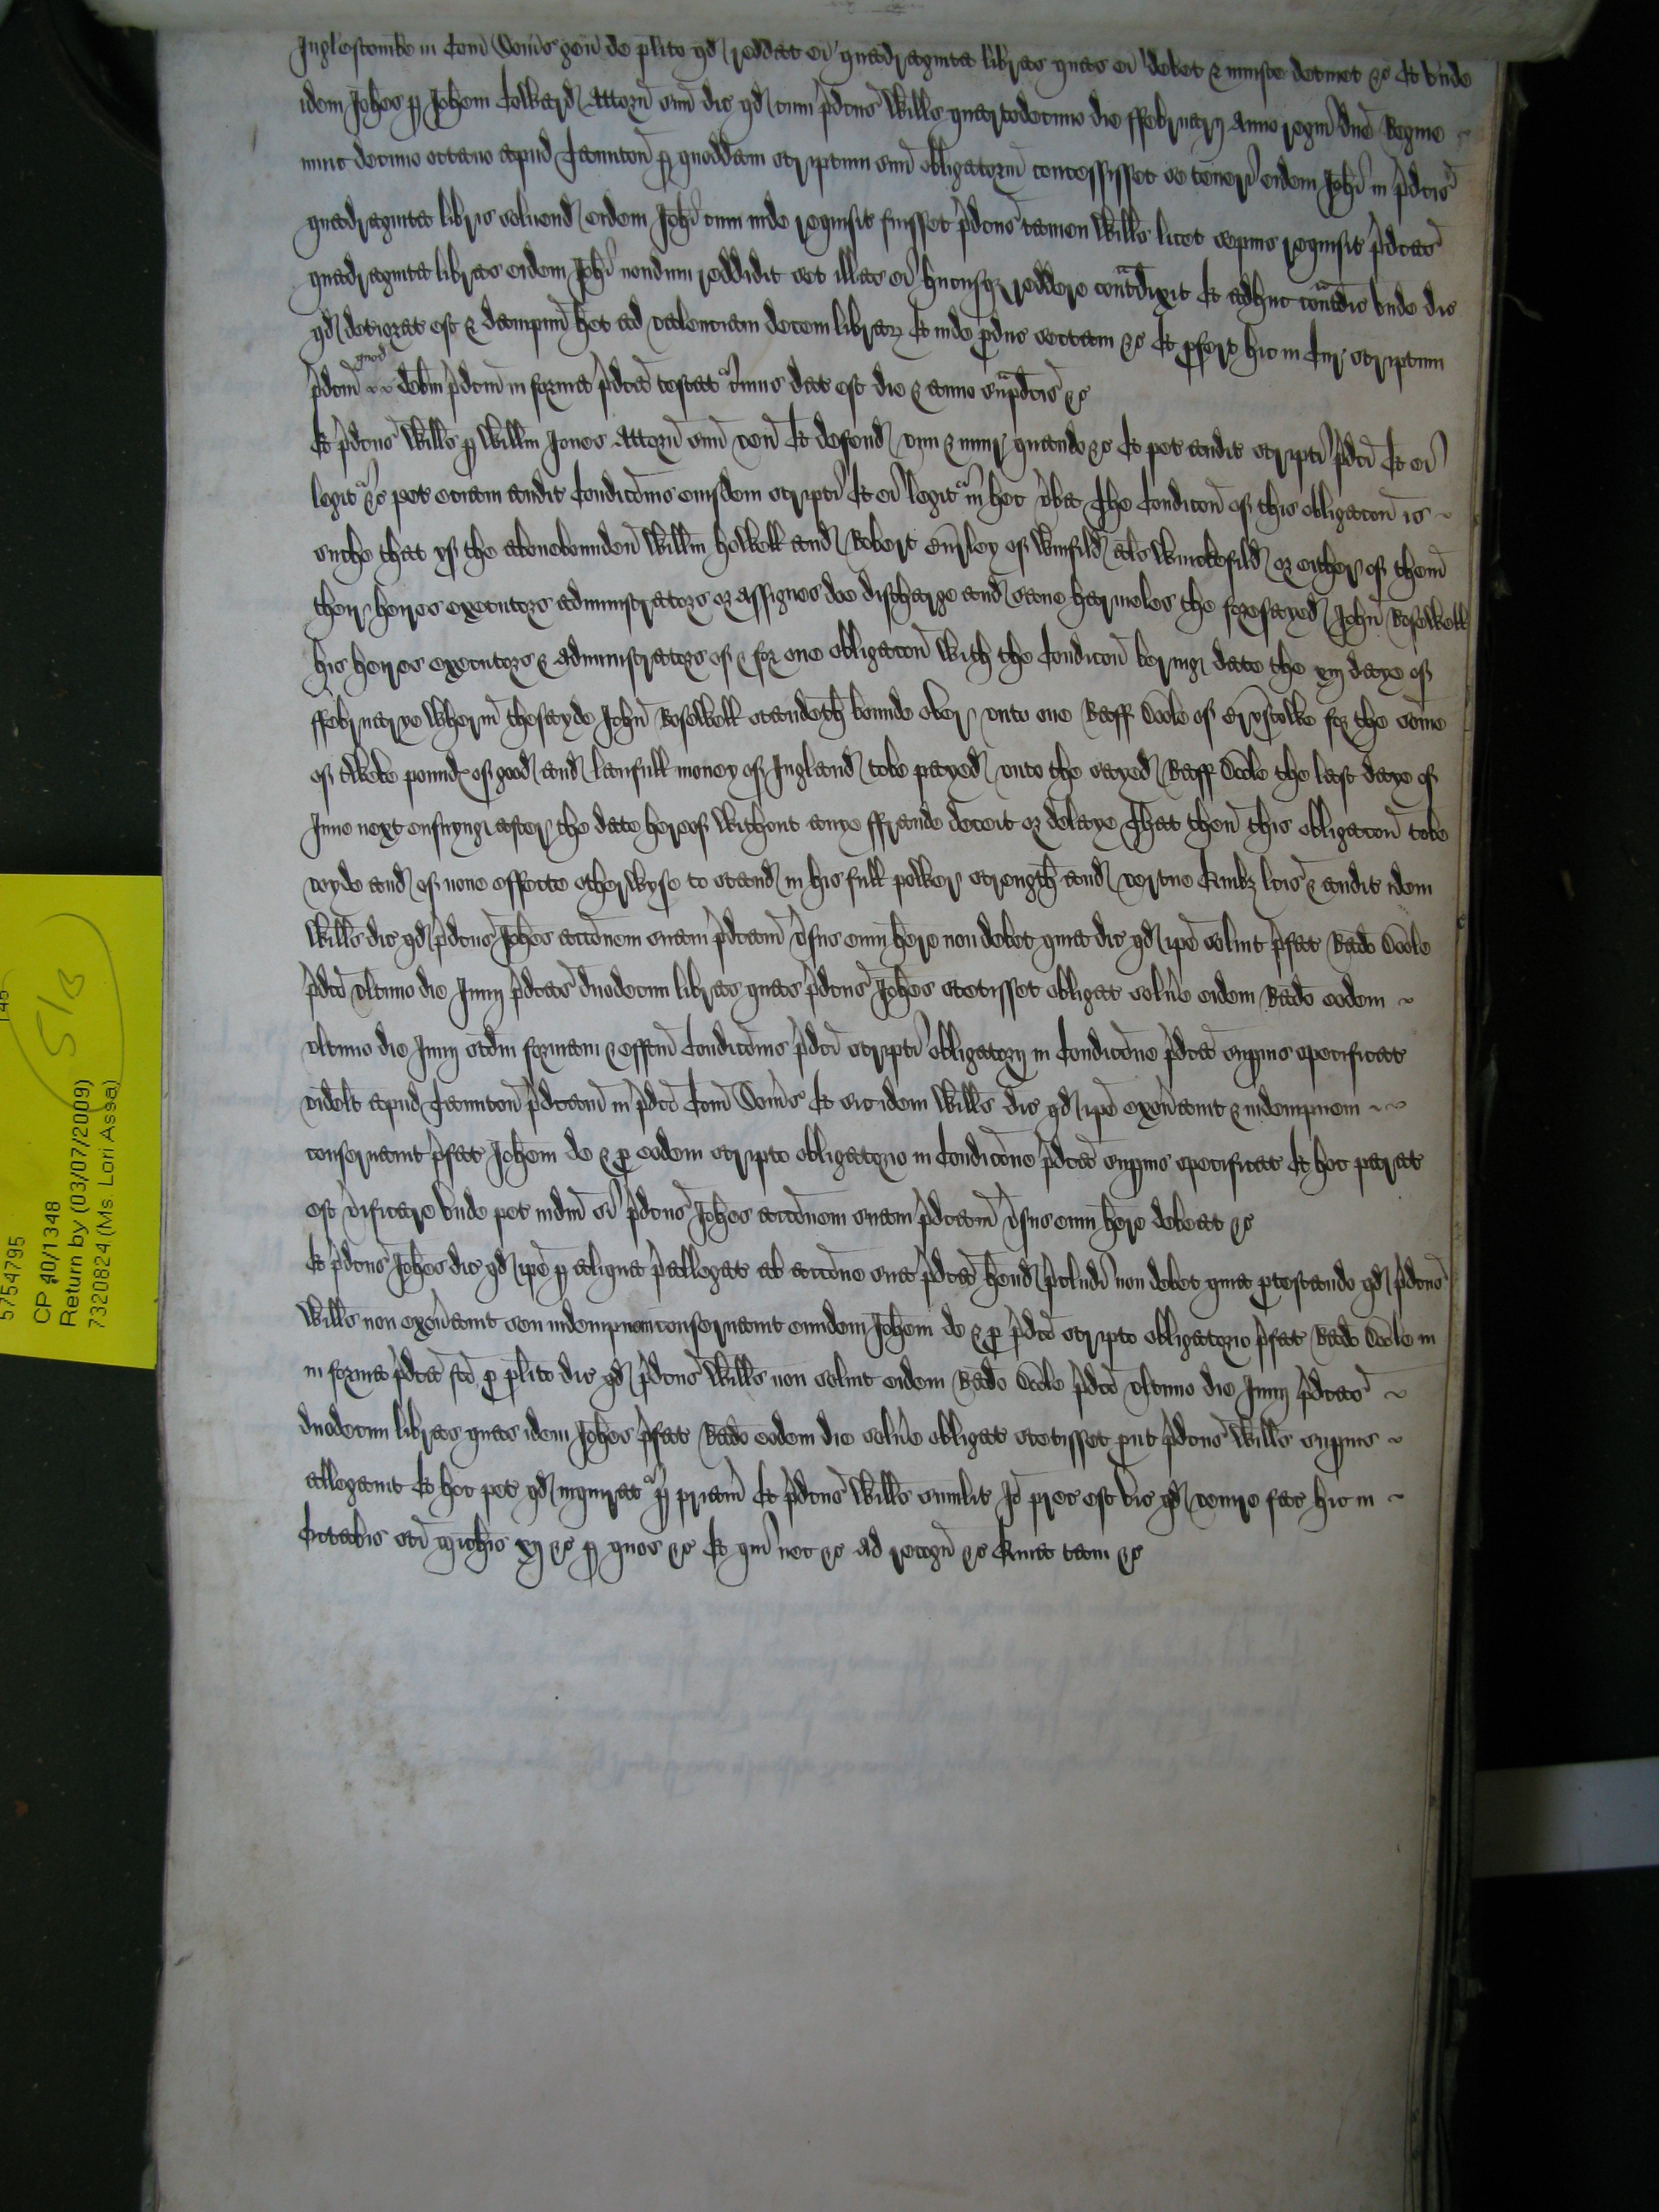 Inglescombe in Com Som's gen de plito qd reddat ei quadraginta libras quas ei debet & iniuste detinet &c Et unde
idem Johes p Johem Cowkard Attorn suu dic qd cum pdcus Wills quartodecimo die ffebruarij Anno regni dne Regine
nunc decimo octavo apud Taunton p quoddam scriptum suu obligatoriu concessisset se teneri eidem Johi in pdcis
quadraginta libris solvend eidem Johi cum inde requisit fuisset pdcus tamen Wills licet sepius requisit pdcas
quadraginta libras eidem Johi nondum reddidit set illas ei hucusq reddere contradixit Et adhuc contradic unde dic
qd deteriorat est & dampnu het ad valenciam decem librar Et inde pduc sectam &c Et pfert hic in Cur scriptum
pdcm quod debm pdcm in forma pdca testat cuius dat est die & anno supadcis &c
Et pdcus Wills p Willm Jones Attorn suu ven Et defend vim & iniur quando &c Et pet audit scripti pdci Et ei
legit &c pet eciam audit Condicois eiusdem scripti Et ei legit in hec vba The Condicon of this obligacon is
suche that yf the abovebounden Willm Holwell and Robert of Winfild als Winckefild or either of them
their heires executors administrators or assignes doe discharge and save harmeles the foresayed John Rosewell
his heires executors & administrators of & for one obligacon with the Condicon beringe date the xiij daye of
ffebruarye wherin thesayde John Rosewell standeth bounde over unto one Raff Coole of Brystolwe for the some
of twelve pound of good and laufull money of Ingland tobe payed unto the sayed Raff Coole the last daye of
June next ensuynge after the date hereof without anye ffraude deceit or delaye That then this obligacon tobe
voyde and of none effecte otherwyse to stand in his full power strength and vertue Quibz lcis & audit idem
Wills dic qd pdcus Johes accionem suam pdcam vsus eum here non debet quia dic qd ipe solvit pfat Rado Coole
pdco ultimo die Junij pdcas duodecim libras quas pdcus Johes stetisset obligat solve eidem Rado eodem
ultimo die Junij scdm formam & effcm Condicois pdci scripti obligatorij in Condicone pdca supius specificat
videlt apud Taunton pdcam in pdco Com Som's Et sic idem Wills dic qd ipe exonavit & indempnem
conservavit pfat Johem de & p eodem scripto obligatorio in Condicone pdca supius specificat Et hoc parat
est vificare unde pet iudm si pdcus Johes accionem suam pdcam vsus eum here debeat &c
Et pdcus Johes dic qd ipe p aliqua pallegat ab accione sua pdca hend pcludi non debet quia protestando qd pdcus
Wills non exonavit seu indempnem conservavit eundem Johem de & p pdco scripto obligatorio pfat Rado Coole in
in forma pdca fco p plito dic qd pdcus Wills non solvit eidem Rado Coole pdco ultimo die Junij pdcas
duodecim libras quas idem Johes pfat Rado eodem die solve obligat stetisset put pdcus Wills supius
allegavit Et hoc pet qd inquirat p priam Et pdcus Wills similit Io prec est vic qd venire fac hic in
Octabis sci Michis xij &c p quos &c Et qui nec &c Ad recogn &c Quia tam &c
5/13
5754795
CP 40/1348
Return by (03/07/2009)
7320824 (Ms. Lori Assa)